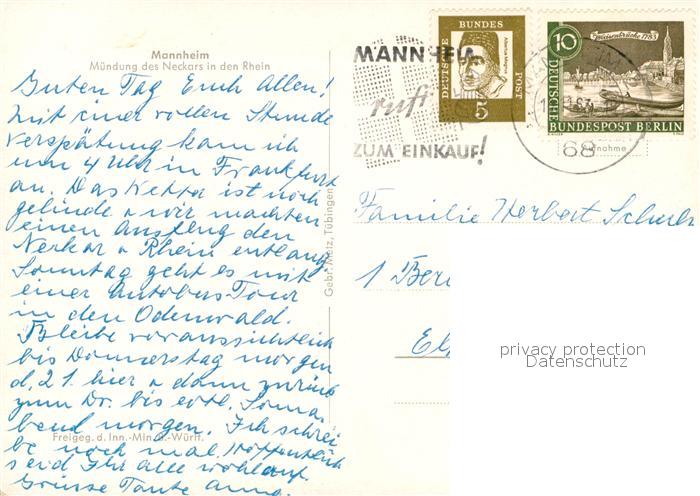 Mannheim
Mündung des Neckars in den Rhein
Guten Tag Euch Allen!
Mit einer vollen Stunde
Verspätung kam ich
um 4 Uhr in Frankfurt
an. Das Wetter ist noch
gelinde u wir machten
einen Ausflug den
Neckar u Rhein entlang.
Sonntag geht es mit
einer Autobus-Tour
in den Odenwald.
Bleibe voraussichtlich
bis Donnerstag morgen
d. 21. hier u dann zurück
zum Dr. bis evtl. Sonna-
bend morgen. Ich schrei-
be noch mal. Hoffentlich
seid Ihr alle wohlauf.
Grüsse Tante Anna.
Freigeg. d. Inn.-Min. d. Württ.
Gebr. Metz, Tübingen
MANNHEIM
ruft
ZUM EINKAUF!
DEUTSCHE BUNDES POST
Albertus Magnus
5
10
Waisenbrücke 1783
DEUTSCHE
BUNDESPOST BERLIN
MANNHEIM
68
Familie Herbert
1 Ber
privacy protection
Datenschutz